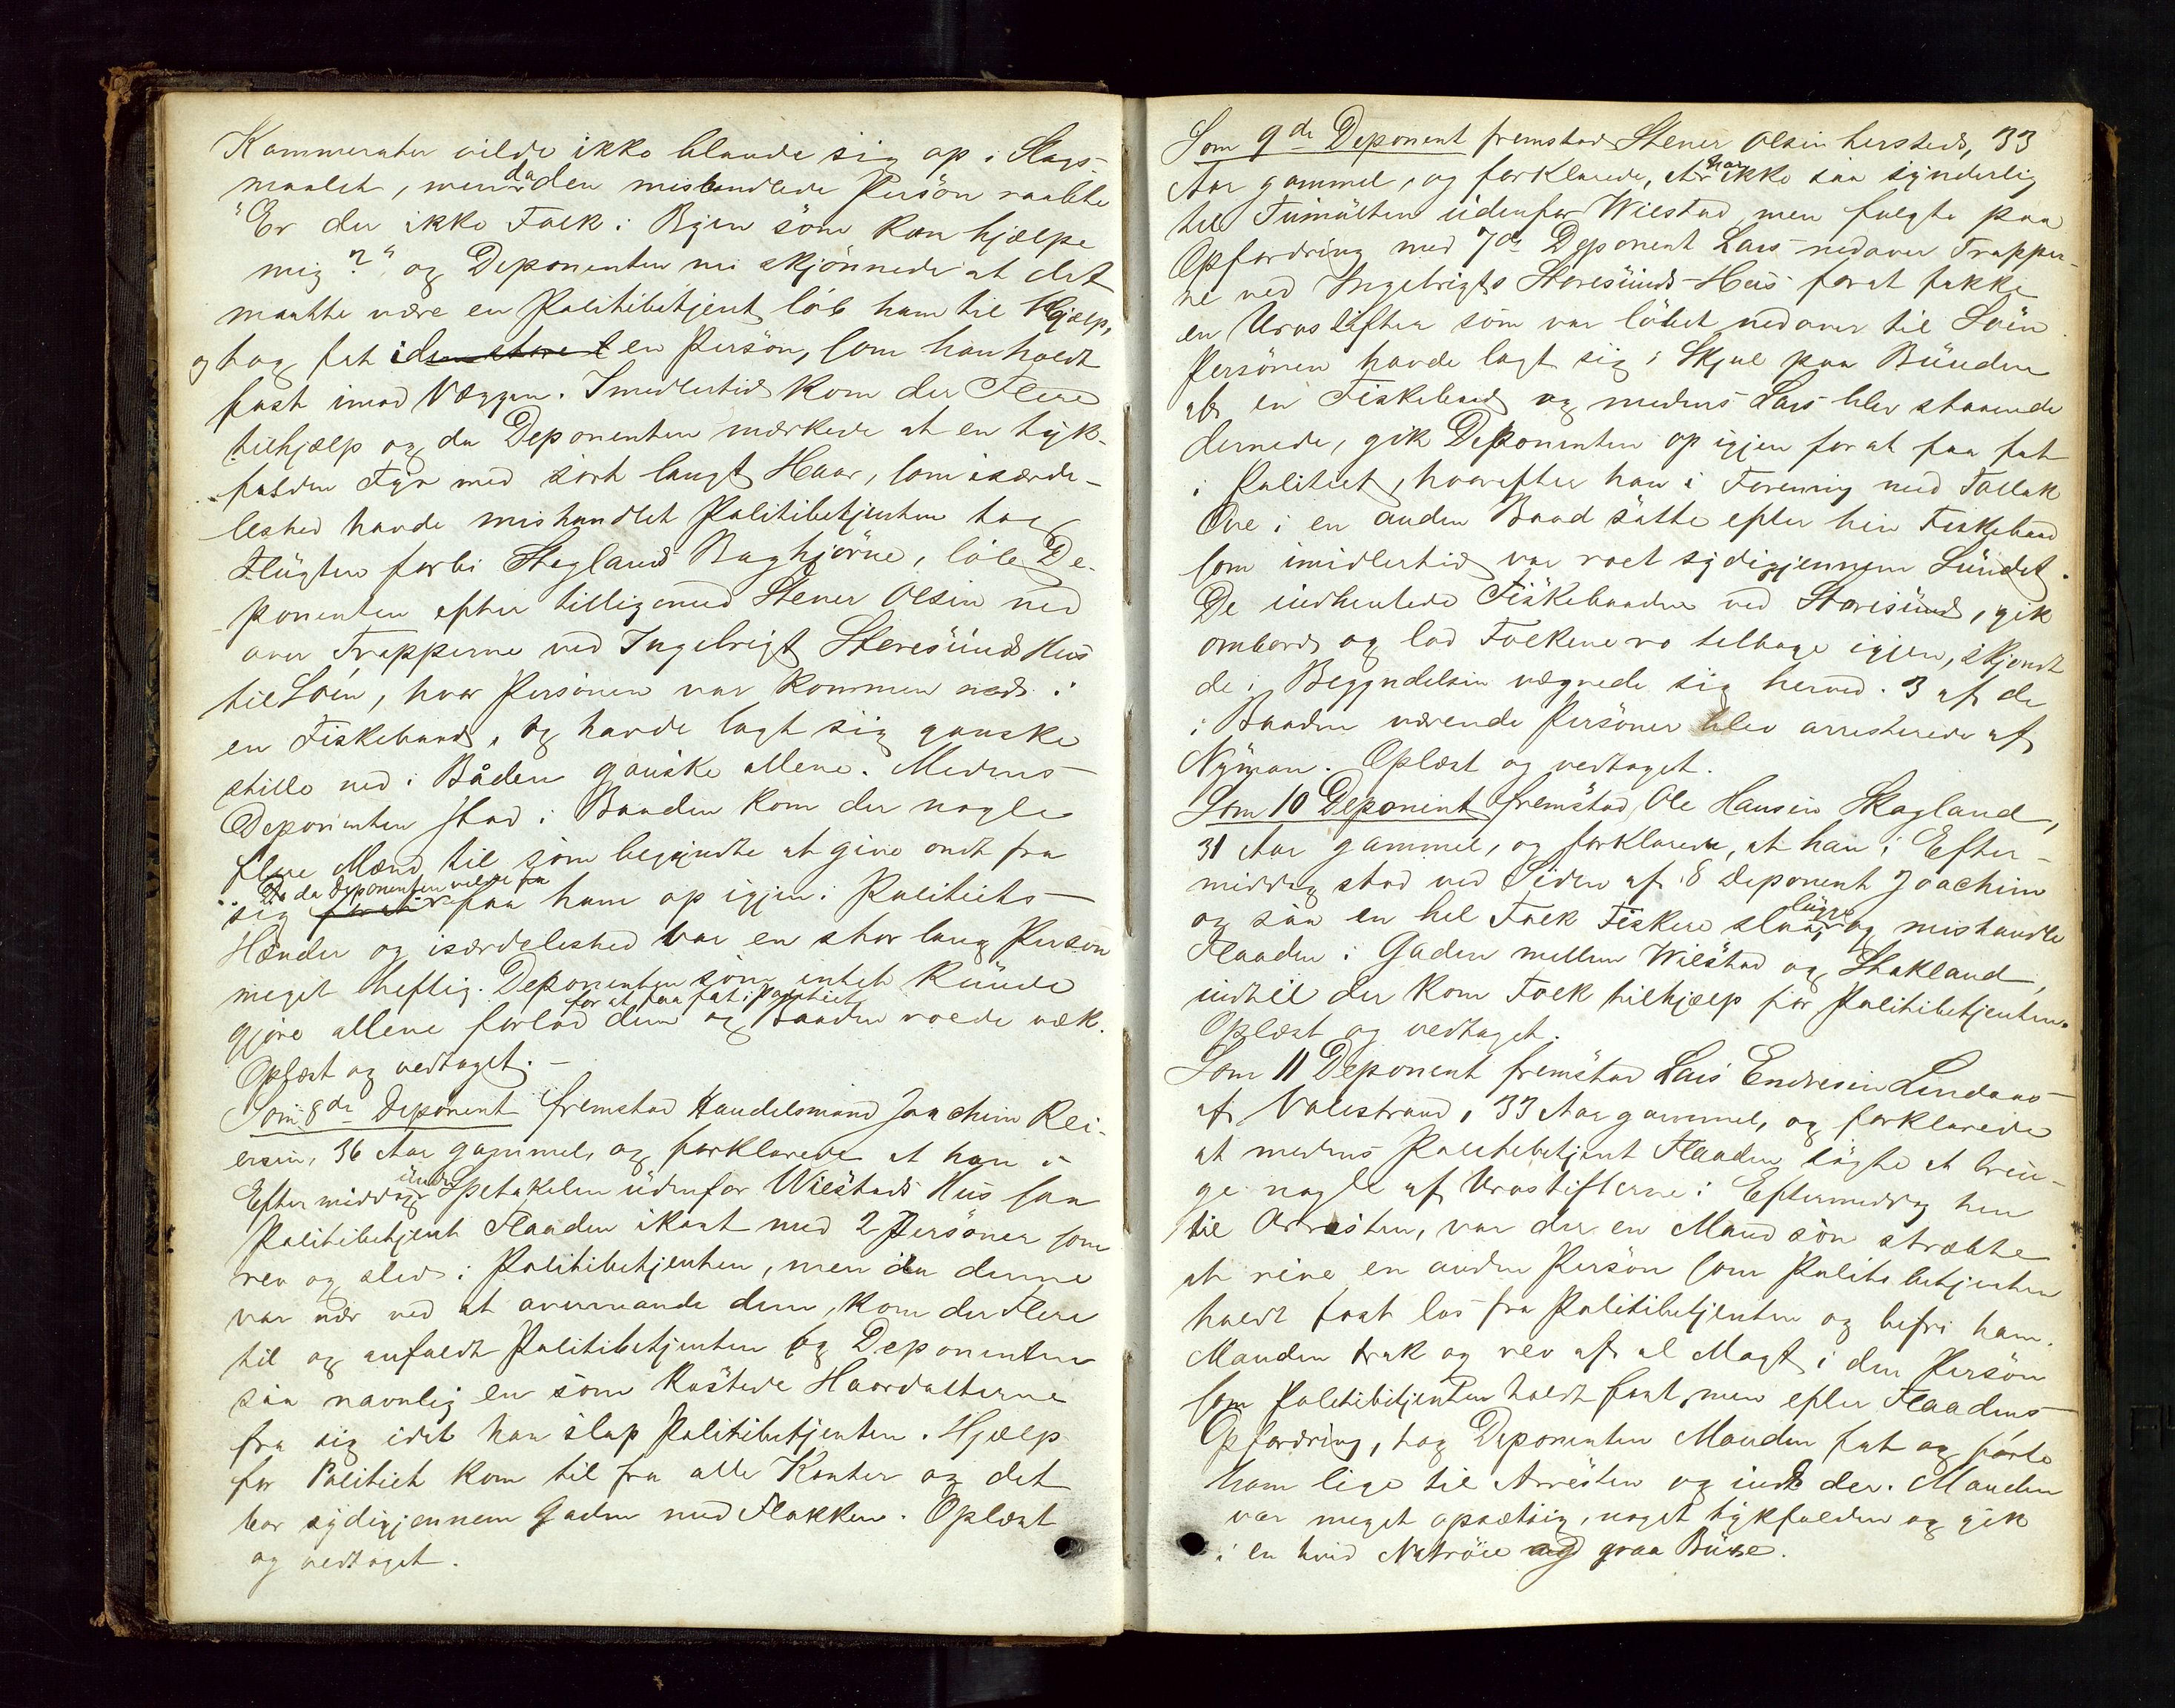 Kammerater vilde ikke blande sig op i Slags-
maalet, men da den mishandlede Person raabte
"Er der ikke Folk i Byen som kan hjælpe
mig?" og Deponenten nu skjønnede at det
maatte være en Politibetjent løb ham til Hjælp,
og tog fat i den store en Person, som han holdt
fast imod Væggen. Imidlertid kom der Flere
tilhjælp og da Deponenten mærkede at en tyk-
falden Fyr med sort langt Haar, som isærde-
leshed havde mishandlet Politibetjenten tog
Flugten forbi Steglands Baghjørne, løb De-
ponenten efter tilligemed Stener Olsen ned
over Trapperne ved Ingebrigt Storesunds Hus
til Søen, hvor Personen var kommen ned i
en Fiskebaad, og havde lagt sig ganske
stille ned i Båden ganske allene. Medens
Deponenten stod i Baaden kom der nogle
flere Mænd til som begyndte at give ondt fra
sig da Deponenten vilde faa ham op igjen i Politiets
Hænder og isærdeleshed var en stor lang Person
meget heftig. Deponenten som intet kunde
gjøre allene forlod dem for at faa fat i Politiet og Baaden roede væk.
Oplæst og vedtaget. –
Som 8de Deponent fremstod Handelsmand Joachim Rei-
ersen, 36 Aar gammel, og forklarede at han i
Eftermiddag under Spetakelen udenfor Wiestads Hus saa
Politibetjent Flaaden ikast med 2 Personer som
rev og sled i Politibetjenten, men da denne
var nær ved at overmande dem, kom der Flere
til og anfaldt Politibetjenten og Deponenten
saa navnlig en som kastede Haardotterne
fra sig idet han slap Politibetjenten. Hjælp
for Politiet kom til fra alle Kanter og det
bar sydigjennem Gaden med Flokken. Oplæst
og vedtaget.
Som 9de Deponent fremstod Stener Olsen hersteds, 33
Aar gammel, og forklarede, At han ikke saa synderlig
til Tumulten udenfor Wiestad, men fulgte paa
Opfordring med 7de Deponent Lars nedover Trapper-
ne ved Ingebrigts Storesunds Hus forat pakke
en Urostifter som var løbet nedover til Søen.
Personen havde lagt sig i Skjul paa Bunden
af en Fiskebaad og medens Lars blev staaende
dernede, gik Deponenten op igjen for at faa fat
i Politiet, hvorefter han i Forening med Tollak
Ove i en anden Baad satte efter hin Fiskebaad
som imidlertid var roet sydigjennem Sundet.
De indhentede Fiskebaaden ved Storesund, gik
ombord og lod Folkene ro tilbage igjen, skjøndt
de i Begyndelsen vægrede sig herved. 3 af de
i Baaden værende Personer blev arresterede af
Nyman. Oplæst og vedtaget.
Som 10 Deponent fremstod Ole Hansen Skagland,
31 Aar gammel, og forklarede, at han i Efter-
middag stod ved Siden af 8 Deponent Joachim
og saa en hel Folk Fiskere slaa, lugge og mishandle
Flaaden i Gaden mellem Wiestad og Stakland,
indtil der kom Folk tilhjælp for Politibetjenten.
Oplæst og vedtaget.
Som 11 Deponent fremstod Lars Endresen Lindaas
af Valestrand, 33 Aar gammel, og forklarede
at medens Politibetjent Flaaden søgte at brin-
ge nogle af Urostifterne i Eftermiddag hen
til Arresten, var der en Mand som stræbte
at rive en anden Person som Politibetjenten
holdt fast løs fra Politibetjenten og befri ham.
Manden trak og rev af al Magt i den Person
som Politibetjenten holdt fast, men efter Flaadens
Opfordring, tog Deponenten Manden fat og førte
ham lige til Arresten og ind der. Manden
var meget opsætsig, noget tykfalden og gik
i en hvid Nattrøie og graa Buxe.